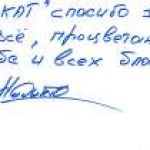 КАТ" спасибо з
сё, процветан
ба и всех благ